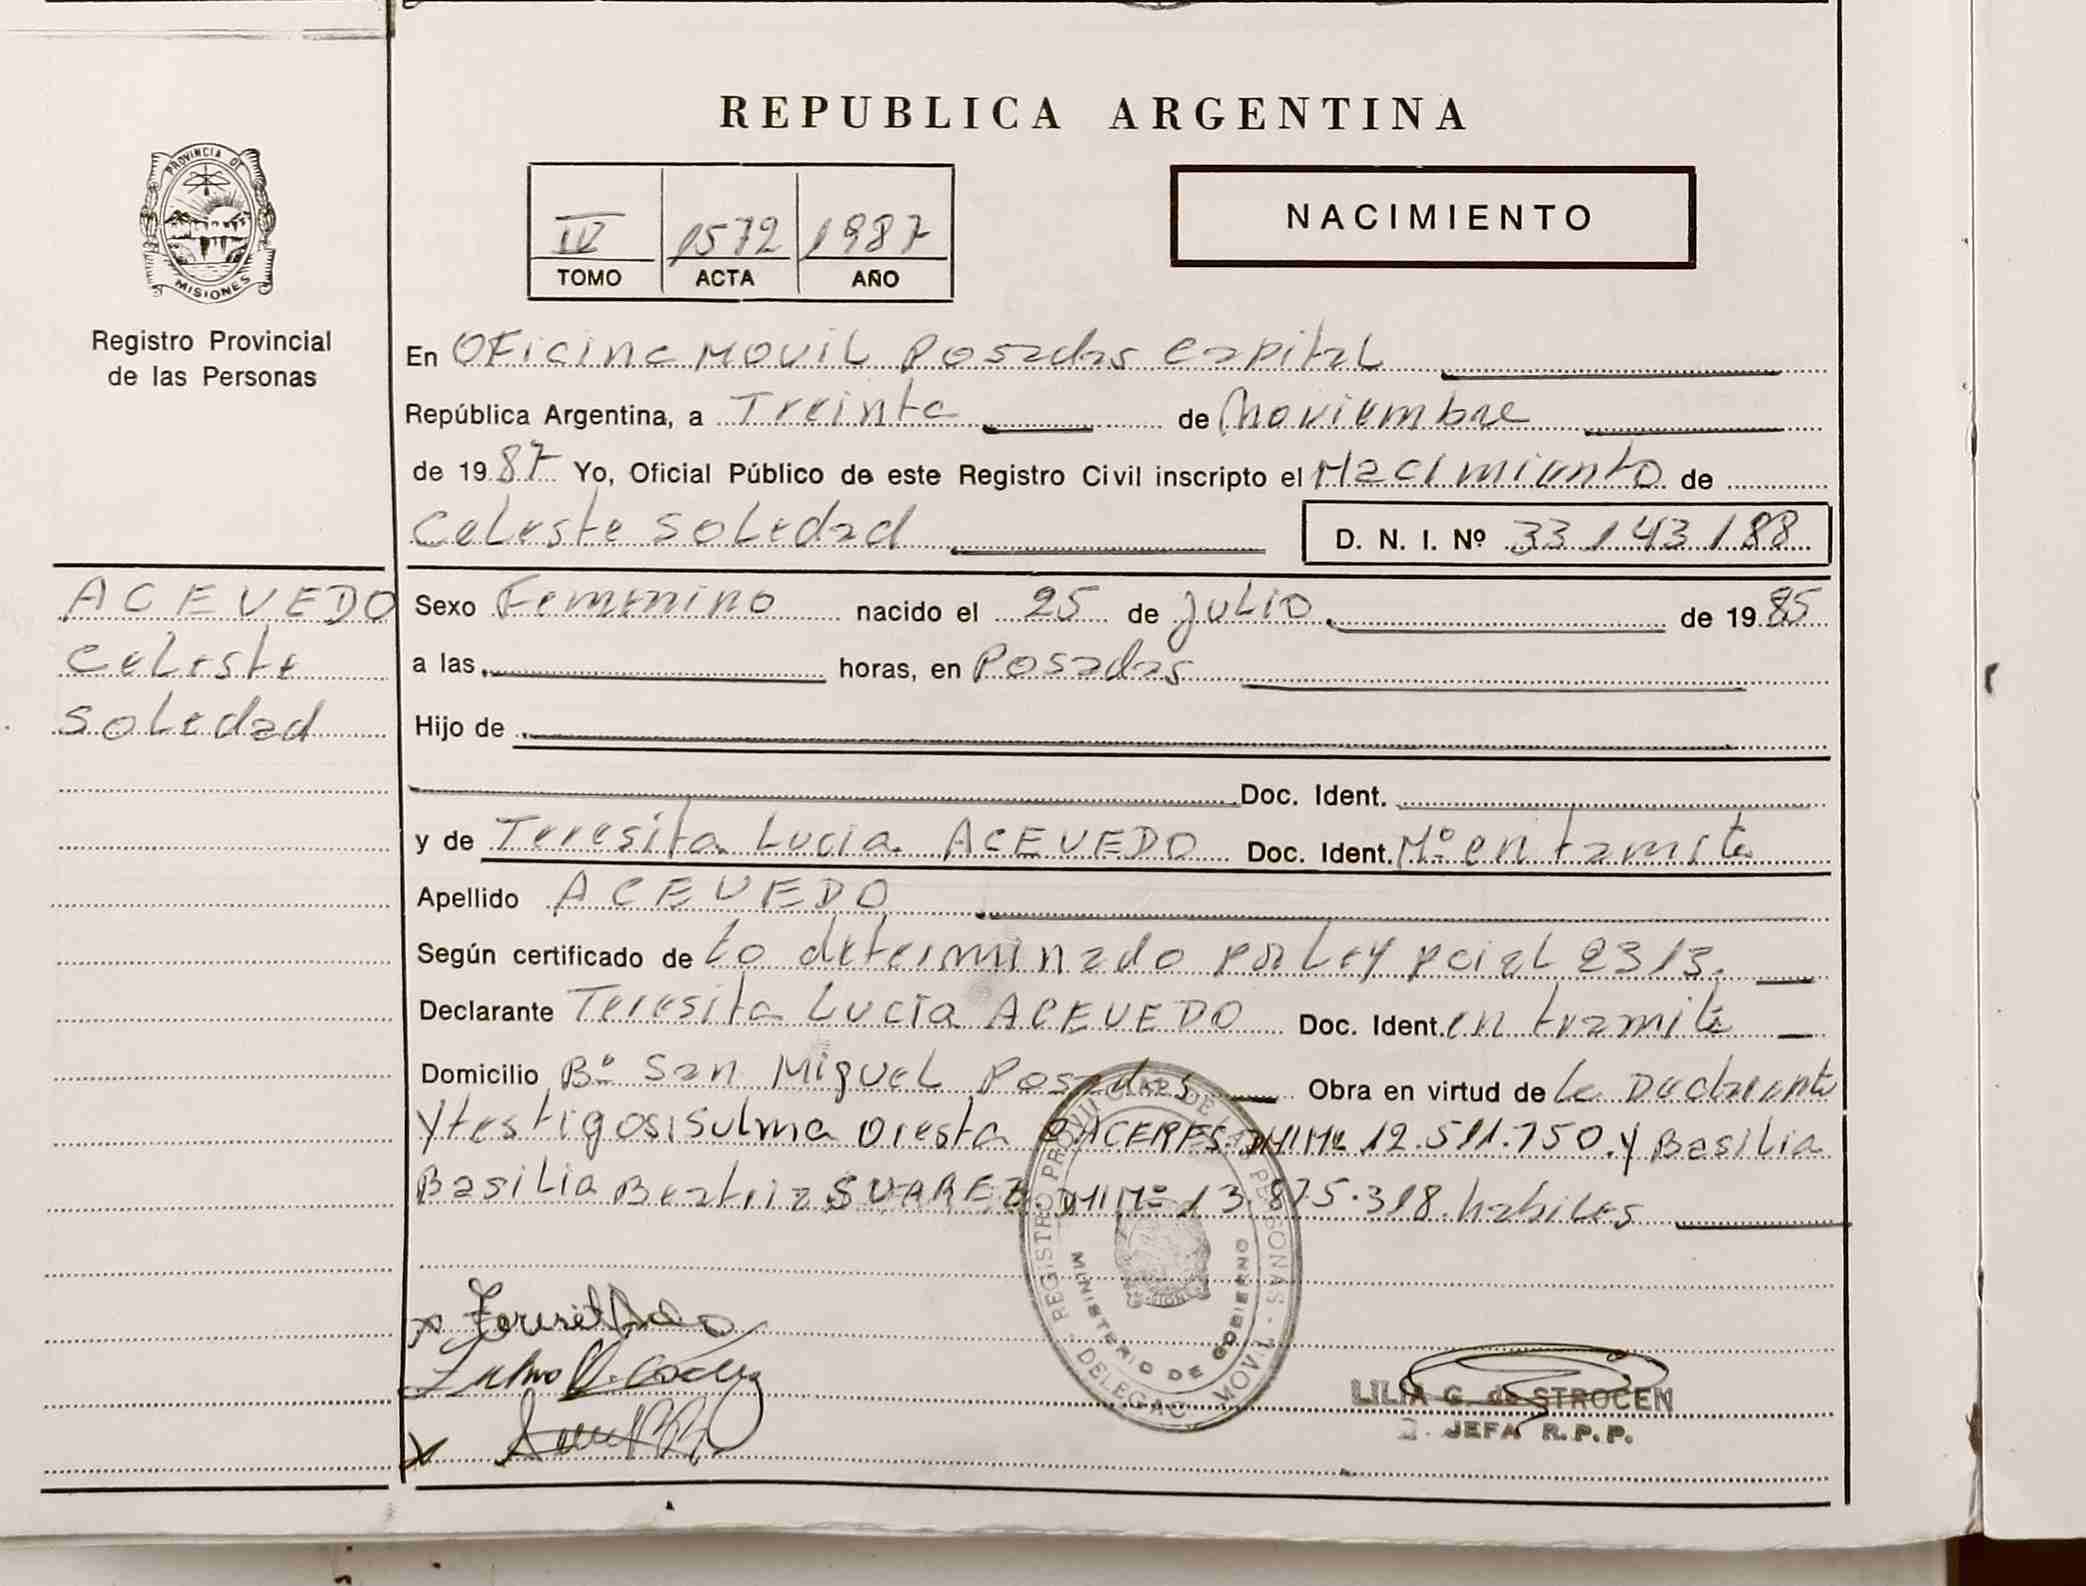 REPUBLICA ARGENTINA
PROVINCIA DE
MISIONES
Registro Provincial
de las Personas
IV 1572 1987
TOMO ACTA AÑO
NACIMIENTO
En Oficina Movil Posadas Capital
República Argentina, a Treinta de Noviembre
de 1987 Yo, Oficial Público de este Registro Civil inscripto el Nacimiento de
Celeste Soledad D. N. I. Nº 33.143.188
ACEVEDO
Celeste
Soledad
Sexo Femenino nacido el 25 de Julio de 1985
a las horas, en Posadas
Hijo de
Doc. Ident.
y de Teresita Lucia ACEVEDO Doc. Ident. Nº en tramite
Apellido ACEVEDO
Según certificado de Lo determinado por Ley pcial 2313.
Declarante Teresita Lucia ACEVEDO Doc. Ident. en tramite
Domicilio Bº San Miguel Posadas Obra en virtud de La Declarante
y testigos: Sulma Oresta CACERES DNI Nº 12.511.750. y Basilia
Basilia Beatriz SUAREZ DNI Nº 13.875.318. habiles
REGISTRO PROVINCIAL DE LAS PERSONAS
MINISTERIO DE GOBIERNO
LILIA G. de STROCEN
JEFA R.P.P.